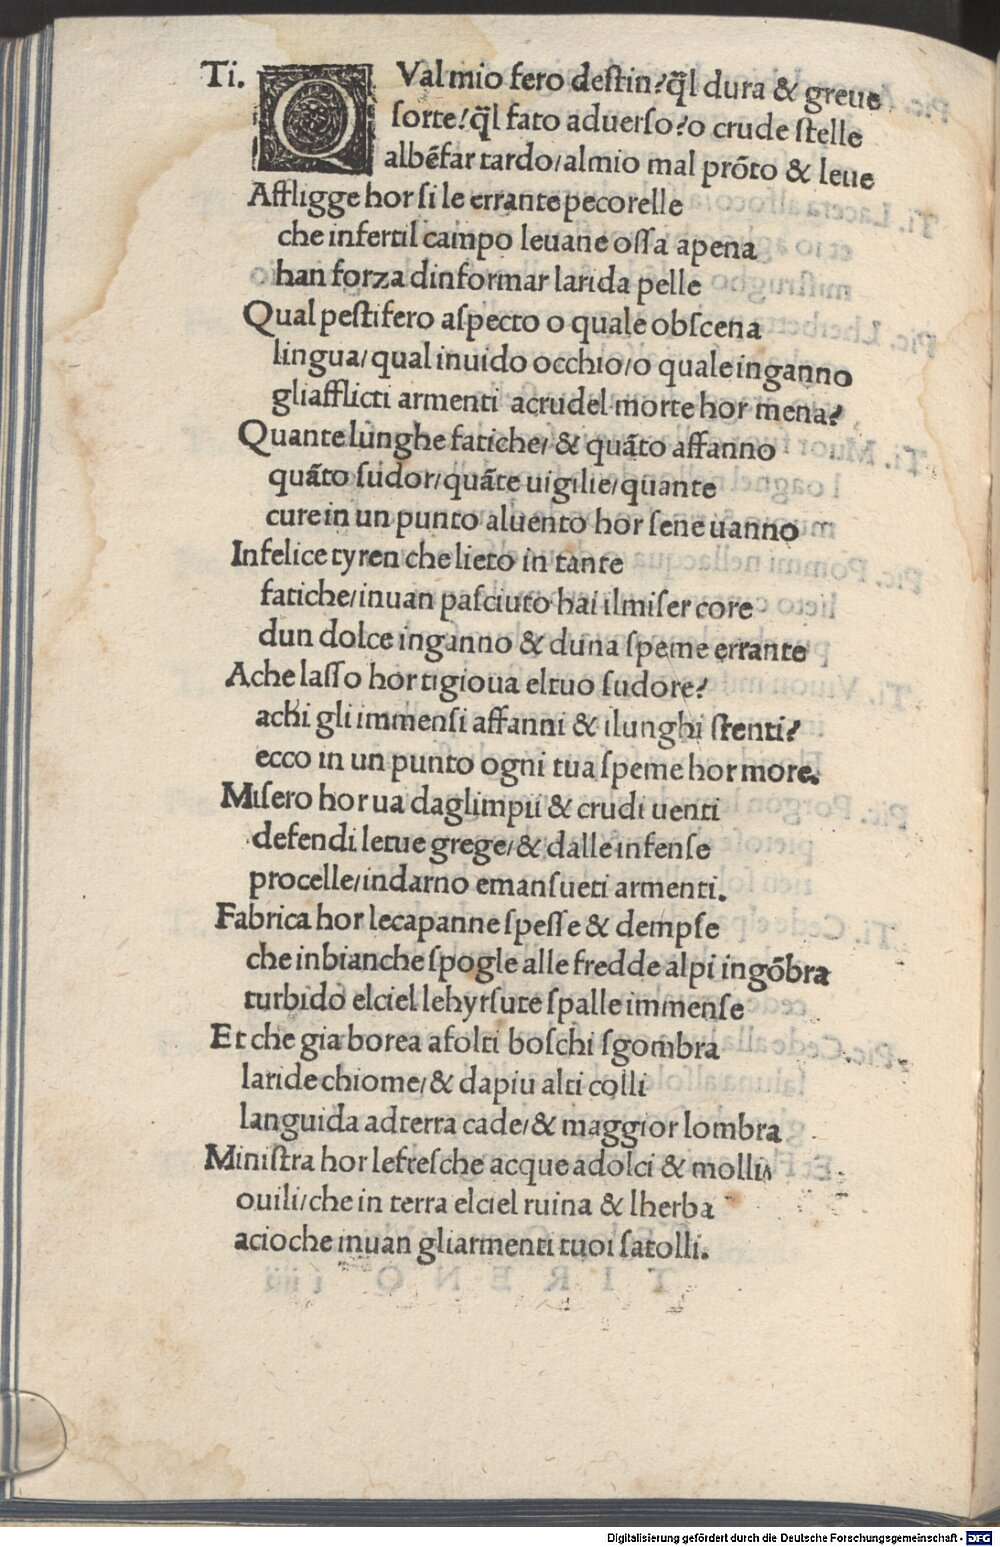 Ti. QVal mio fero deſtin?q̃l dura & greue
ſorte?q̃l fato aduerſo?o crude ſtelle
albẽfar tardo/almio mal prõto & leue
Affligge hor ſi le errante pecorelle
che infertil campo leuane oſſa apena
han forza dinformar larida pelle
Qual peſtifero aſpecto o quale obſcena
lingua/qual inuido occhio/o quale inganno
gliafflicti armenti acrudel morte hor mena?
Quante lunghe fatiche/& quãto affanno
quãto ſudor/quãte uigilie/quante
cure in un punto aluento hor ſene uanno
Infelice tyren che lieto in tante
fatiche/inuan paſciuto hai ilmiſer core
dun dolce inganno & duna ſpeme errante
Ache laſſo hor tigioua eltuo ſudore?
achi gli immenſi affanni & ilunghi ſtenti?
ecco in un punto ogni tua ſpeme hor more.
Miſero hor ua daglimpii & crudi uenti
defendi letue grege/& dalle infenſe
procelle/indarno emanſueti armenti.
Fabrica hor lecapanne ſpeſſe & dempſe
che inbianche ſpogle alle fredde alpi ingõbra
turbido elciel lehyrſute ſpalle immenſe
Et che gia borea afolti boſchi ſgombra
laride chiome/& dapiu alti colli
languida adterra cade/& maggior lombra
Miniſtra hor lefreſche acque adolci & molli
ouili/che in terra elciel ruina & lherba
acioche inuan gliarmenti tuoi ſatolli.
Digitalisierung gefördert durch die Deutsche Forschungsgemeinschaft - DFG